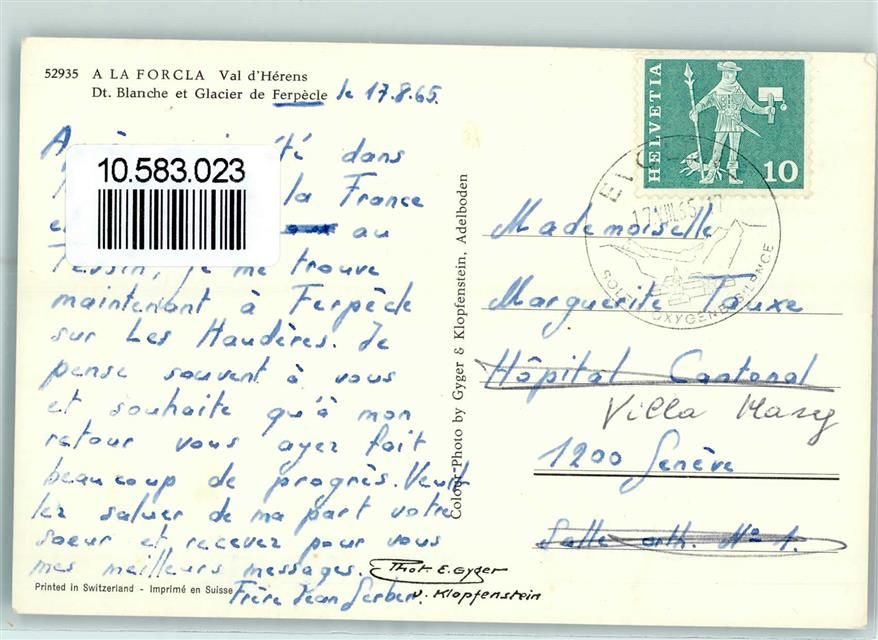 52935 A LA FORCLA Val d'Hérens
Dt. Blanche et Glacier de Ferpècle le 17.8.65.
été dans
10.583.023
la France
au
Tessin, je me trouve
maintenant à Ferpècle
sur Les Haudères. Je
pense souvent à vous
et souhaite qu'à mon
retour vous ayez fait
beaucoup de progrès. Veuil
lez saluer de ma part votre
soeur et recevez pour vous
mes meilleurs messages.
Frère Jean Gerber.
Printed in Switzerland - Imprimé en Suisse
Phot. E. Gyger
u. Klopfenstein
Colour-Photo by Gyger & Klopfenstein, Adelboden
HELVETIA
10
OXYGENE SILENCE
Mademoiselle
Marguerite Tauxe
Hôpital Cantonal
Villa
1200 Genève
Salle orth. No 1.